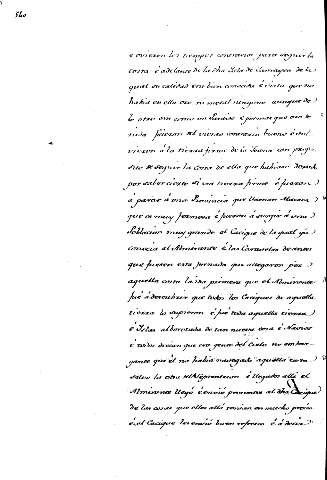 540
e ovieron los tiempos contrarios para seguir la
costa é adelante de la dha Isla de Jamayca de la
qual su calidad era bien conocida é vista que no
habia en ella oro ni metal ninguno aunque de
lo otro era como un Paraiso é
vida fueron al viento contrario bueno é vol
vieron á la tierra firme de la Juana con propo
sito de seguir la costa de ella que habian dexado
por saber cierto si era tierra firme é fueron
a parar á una Provincia que llaman Macaca
que es muy fermosa é fueron á surgir á una
Poblacion muy grande el Cacique de la qual ya
conocia al Almirante é las Caravelas de antes
que fuesen esta jornada que allegaron por
aquella costa la vez primera que el Almirante
fué á descubrir que todos los Caciques de aquella
tierra lo supieron é fue toda aquella tierra
é Islas alborotada de tan nueva cosa é Navios
é todos decian que era gente del Cielo no embar
gante que él no habia navegado aquella costa
salvo la otra del Septentrion é llegados alli el
Almirante llegó é envió presentes al dho Cacique
de las cosas que ellos alli tenian en mucho precio
é el Cacique les envió buen refresco é á decir